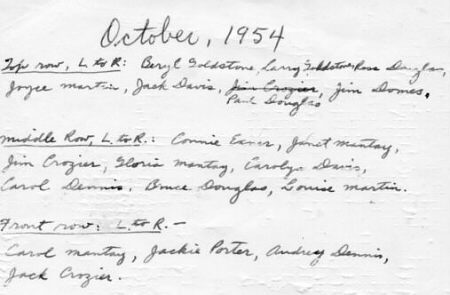 October, 1954
Top row, L. to R: Beryl Goldstone, Larry Goldstone Rose Douglas,
Joyce Martin, Jack Davis, Jim Crozier, Jim Domes,
Paul Douglas
Middle Row, L. to R.: Connie Exner, Janet Mantay,
Jim Crozier, Gloria Mantay, Carolyn Davis,
Carol Dennis, Bruce Douglas, Louise Martin.
Front row: L. to R. —
Carol Mantay, Jackie Porter, Audrey Dennis,
Jack Crozier.